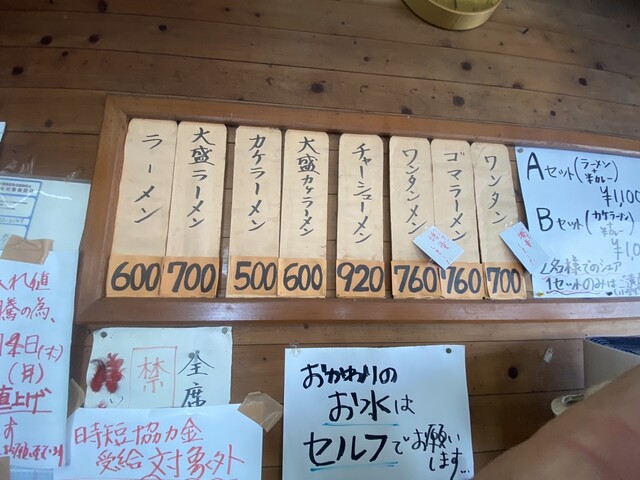 ラーメン
600
大盛ラーメン
700
カケラーメン
500
大盛カケラーメン
600
チャーシューメン
920
ワンタンメン
760
ゴマラーメン
760
ワンタン
700
Aセット(ラーメン
+
半カレー)
¥1100
Bセット(カケラーメン
半カレー
¥10
2名様でのシェア
1セットのみは
入れ値
騰の為、
日(木)
(月)
値上げ
す
禁
全席
時短協力金
受給対象外
おかわりの
お水は
セルフでお願い
します...